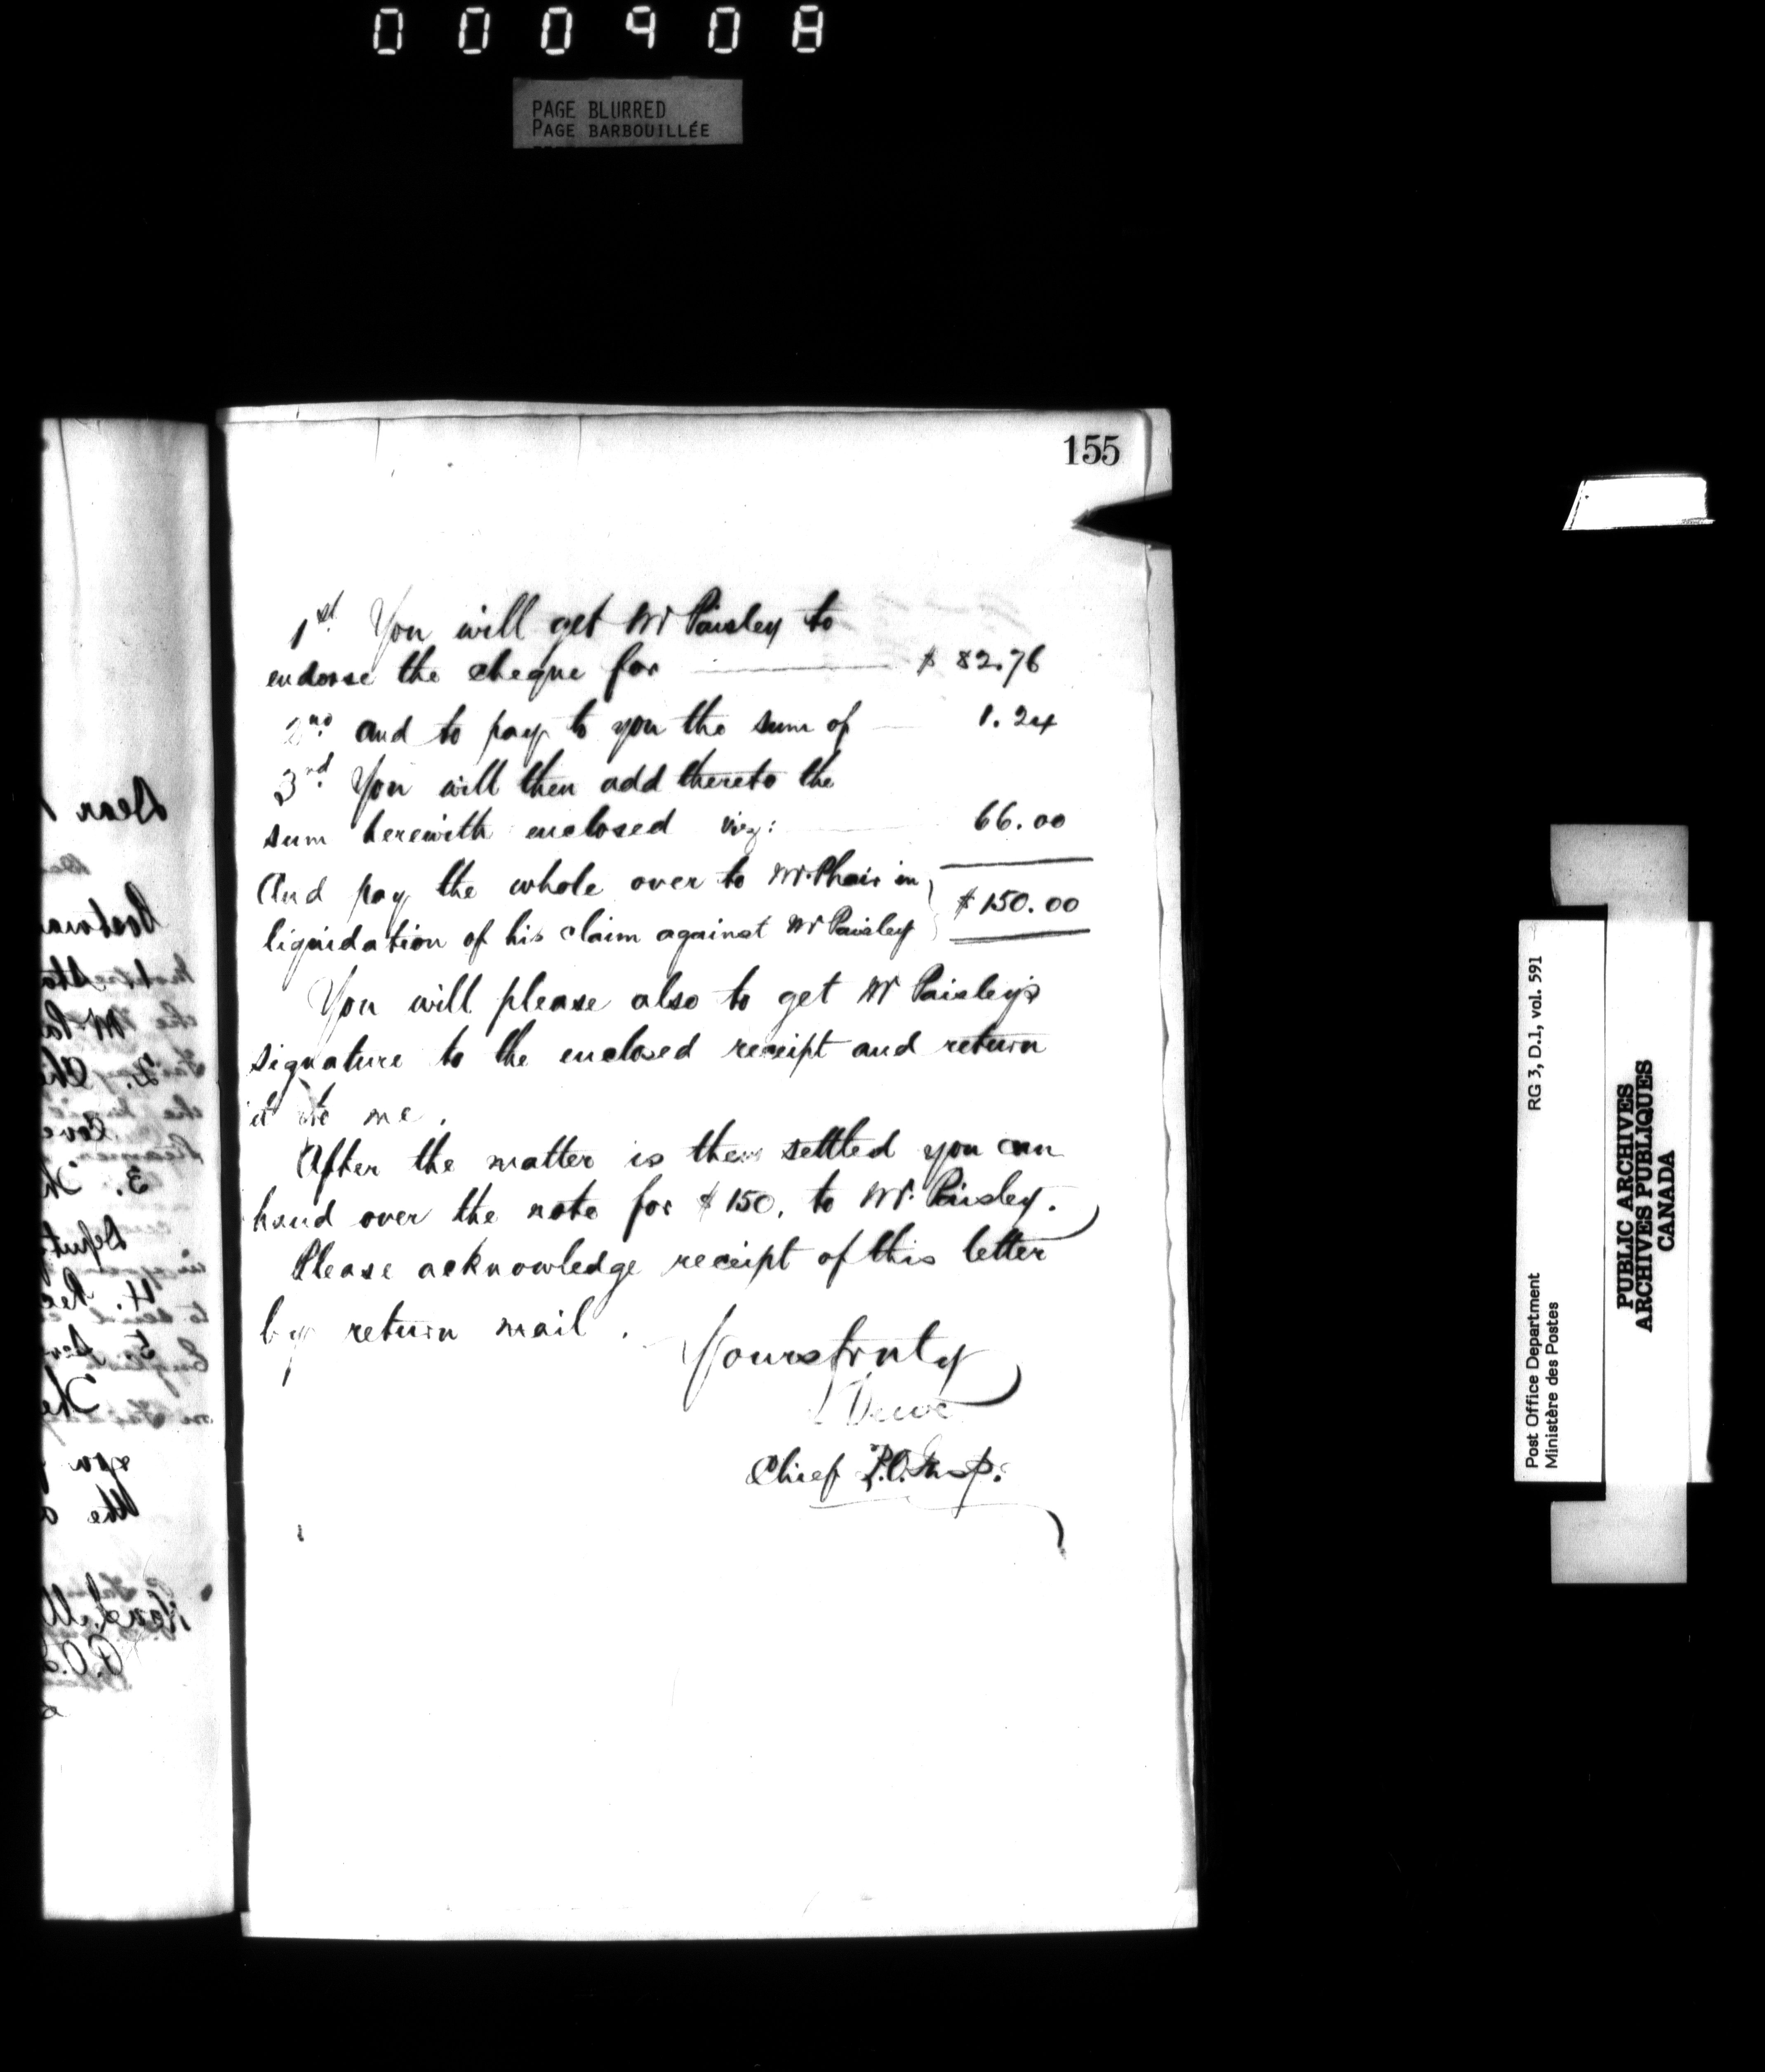 000908
PAGE BLURRED
PAGE BARBOUILLÉE
155
1st. You will get Mr Paisley to
endorse the cheque for $ 82.76
2nd and to pay to you the sum of 1.24
3rd. You will then add thereto the
sum herewith enclosed viz: 66.00
And pay the whole over to Mr. Phair in
liquidation of his claim against Mr Paisley $150.00
You will please also to get Mr Paisley's
signature to the enclosed receipt and return
it to me.
After the matter is then settled you can
hand over the note for $150. to Mr. Paisley.
Please acknowledge receipt of this letter
by return mail.
Yours truly
Dewe
Chief P.O. Insp.
Dear
the
Post Office Department
Ministère des Postes
RG 3, D.1, vol. 591
PUBLIC ARCHIVES
ARCHIVES PUBLIQUES
CANADA